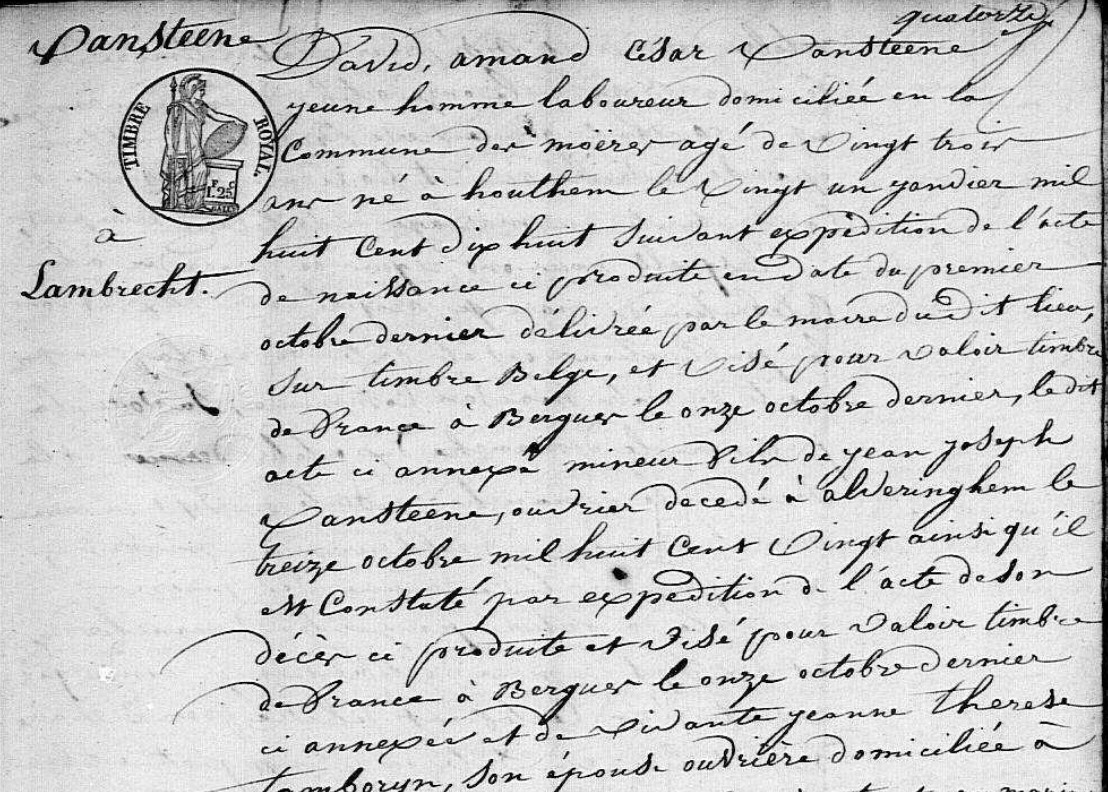 quatorze
Vansteene
David, amand César Vansteene
yeune homme laboureur domiciliée en la
TIMBRE ROYAL.
1F 25C
Commune des moëres agé de Vingt trois
ans né à houthem le Vingt un yanvier mil
à
huit Cent dix huit Suivant expédition de l'acte
Lambrecht.
de naissance ci produite en date du premier
octobre dernier délivrée par le maire du dit lieu,
Sur timbre Belge, et Visé pour Valoir timbre
de France à Bergues le onze octobre dernier, le dit
acte ci annexé mineur fils de yean yoseph
Vansteene, ouvrier decedé à alveringhem le
treize octobre mil huit Cent Vingt ainsi qu'il
est Constaté par expedition de l'acte de son
décès ci produite et Visé pour Valoir timbre
de France à Bergues le onze octobre dernier
ci annexée et de Vivante yeanne therese
tamboryn, son épouse ouvrière domiciliée à